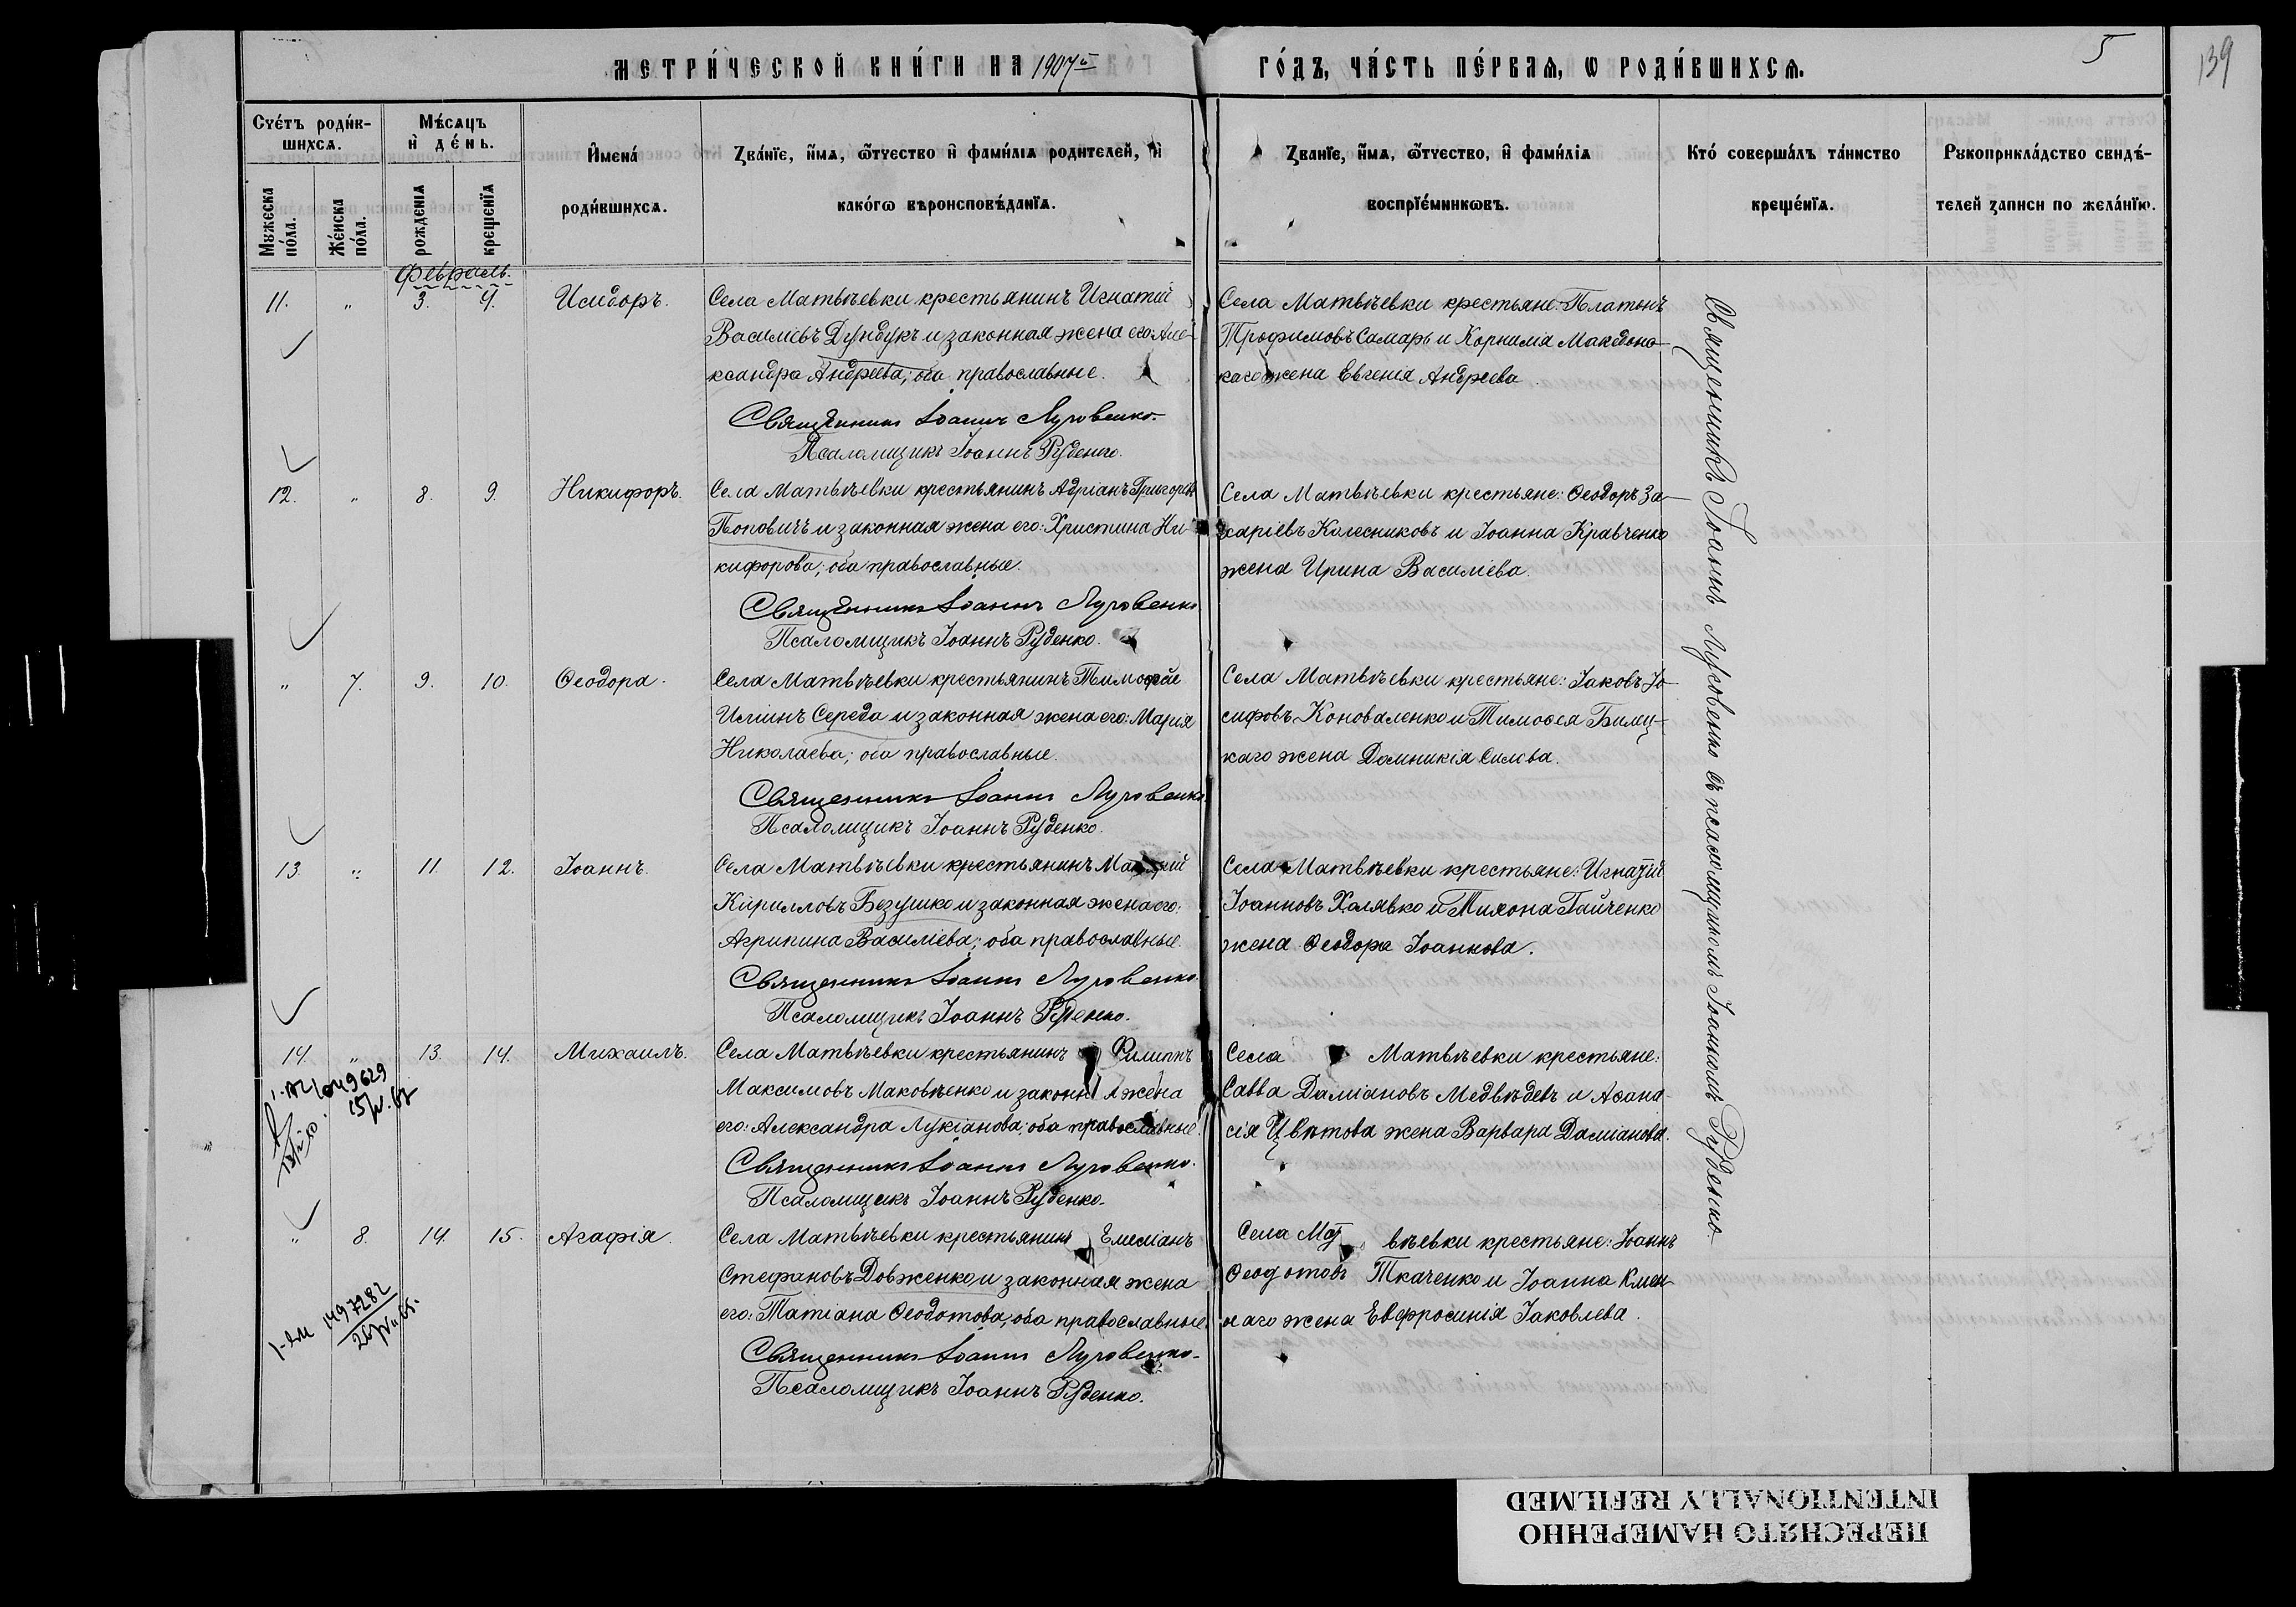 МЕТРИ́ЧЕСКОЙ КНИ́ГИ НА 1907й
ГО́ДЪ, ЧА́СТЬ ПЕ́РВАѦ, Ѡ РОДИ́ВШИХСѦ.
5
139
Сче́тъ роди́в-
шихсѧ.
Мꙋжеска
по́ла.
Же́нска
по́ла.
Мѣ́сѧцъ
и҆ де́нь.
рожденїѧ
крещенїѧ
И҆мена́
роди́вшихсѧ.
Зва́нїе, и҆́мѧ, ѻ҆́тчество и҆ фами́лїѧ родителей, и҆
како́гѡ вѣроисповѣ́данїѧ.
Званїе, и҆́мѧ, ѻ҆́тчество, и҆ фами́лїѧ
воспрїе́мникѡвъ.
Кто́ соверша́лъ та́инство
креще́нїѧ.
Рꙋкоприкла́дство свидѣ́-
телей записи по жела́нїю.
Февраль.
11. " 3. 4. Исидоръ.
Села Матвѣевки крестьянинъ Игнатій
Василіевъ Дундукъ и законная жена его: Але-
ксандра Андреева; оба православные.
Священникъ Іоаннъ Луговенко.
Псаломщикъ Іоаннъ Руденко.
Села Матвѣевки крестьяне: Платонъ
Трофимовъ Самарь и Корнилія Македонс-
каго жена Евгенія Андреева.
12. " 8. 9. Никифоръ.
Села Матвѣевки крестьянинъ Адріанъ Григорьев
Поповичъ и законная жена его: Христина Ни-
кифорова; оба православные.
Священникъ Іоаннъ Луговенко.
Псаломщикъ Іоаннъ Руденко.
Села Матвѣевки крестьяне: Ѳеодоръ За-
харіевъ Колесниковъ и Іоанна Кравченко
жена Ирина Василіева.
" 7. 9. 10. Ѳеодора.
Села Матвѣевки крестьянинъ Тимоѳей
Иліинъ Середа и законная жена его: Марія
Николаева; оба православные.
Священникъ Іоаннъ Луговенко.
Псаломщикъ Іоаннъ Руденко.
Села Матвѣевки крестьяне: Іаковъ Іо-
сифовъ Коноваленко и Тимоѳея Билиц-
каго жена Домникія Силова.
13. " 11. 12. Іоаннъ.
Села Матвѣевки крестьянинъ
Кирилловъ Безушко и законная жена его:
Агрипина Василіева; оба православные.
Священникъ Іоаннъ Луговенко.
Псаломщикъ Іоаннъ Руденко.
Села Матвѣевки крестьяне: Игнатій
Іоанновъ Халявко и Тихона Гайченко
жена Ѳеодора Іоаннова.
14. " 13. 14. Михаилъ.
Села Матвѣевки крестьянинъ Филиппъ
Максимовъ Маковѣенко и законная жена
его: Александра Лукіанова; оба православные.
Священникъ Іоаннъ Луговенко.
Псаломщикъ Іоаннъ Руденко.
Села Матвѣевки крестьяне:
Савва Даміановъ Медвѣдевъ и Аѳана-
сія Цвѣтова жена Варвара Даміанова.
" 8. 14. 15. Агафія.
Села Матвѣевки крестьянинъ Емеліанъ
Стефановъ Довженко и законная жена
его: Татіана Ѳеодотова; оба православные.
Священникъ Іоаннъ Луговенко.
Псаломщикъ Іоаннъ Руденко.
1497282
Села Матвѣевки крестьяне: Іоаннъ
Ѳеодотовъ Ткаченко и Іоанна
жена Евфросинія Іаковлева.
Священникъ Іоаннъ Луговенко съ псаломщикомъ Іоанномъ Руденко.
ПЕРЕСНЯТО НАМЕРЕННО
INTENTIONALLY REFILMED